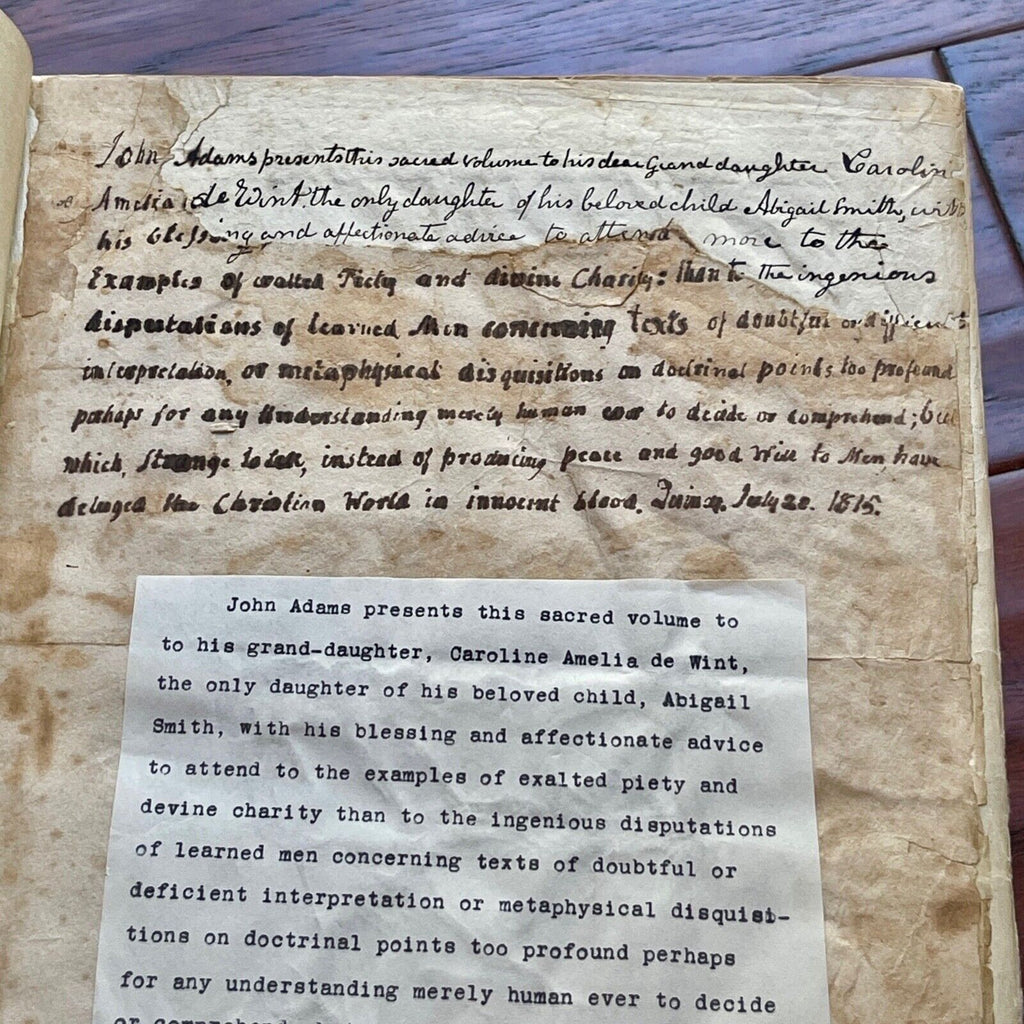 John Adams presents this sacred volume to his dear Grand daughter Carolin
Amelia de Wint, the only daughter of his beloved child Abigail Smith, with
his blessing and affectionate advice to attend more to the
Examples of exalted Piety and divine Charity: than to the ingenious
disputations of learned Men concerning texts of doubtful or difficult
interpretation, or metaphysical disquisitions on doctrinal points too profound
perhaps for any Understanding merely human ever to decide or comprehend; but
which, Strange to tell, instead of producing peace and good Will to Men, have
deluged the Christian World in innocent blood. Quincy. July 20. 1815.
John Adams presents this sacred volume to
to his grand-daughter, Caroline Amelia de Wint,
the only daughter of his beloved child, Abigail
Smith, with his blessing and affectionate advice
to attend to the examples of exalted piety and
devine charity than to the ingenious disputations
of learned men concerning texts of doubtful or
deficient interpretation or metaphysical disquisi-
tions on doctrinal points too profound perhaps
for any understanding merely human ever to decide
or comprehend